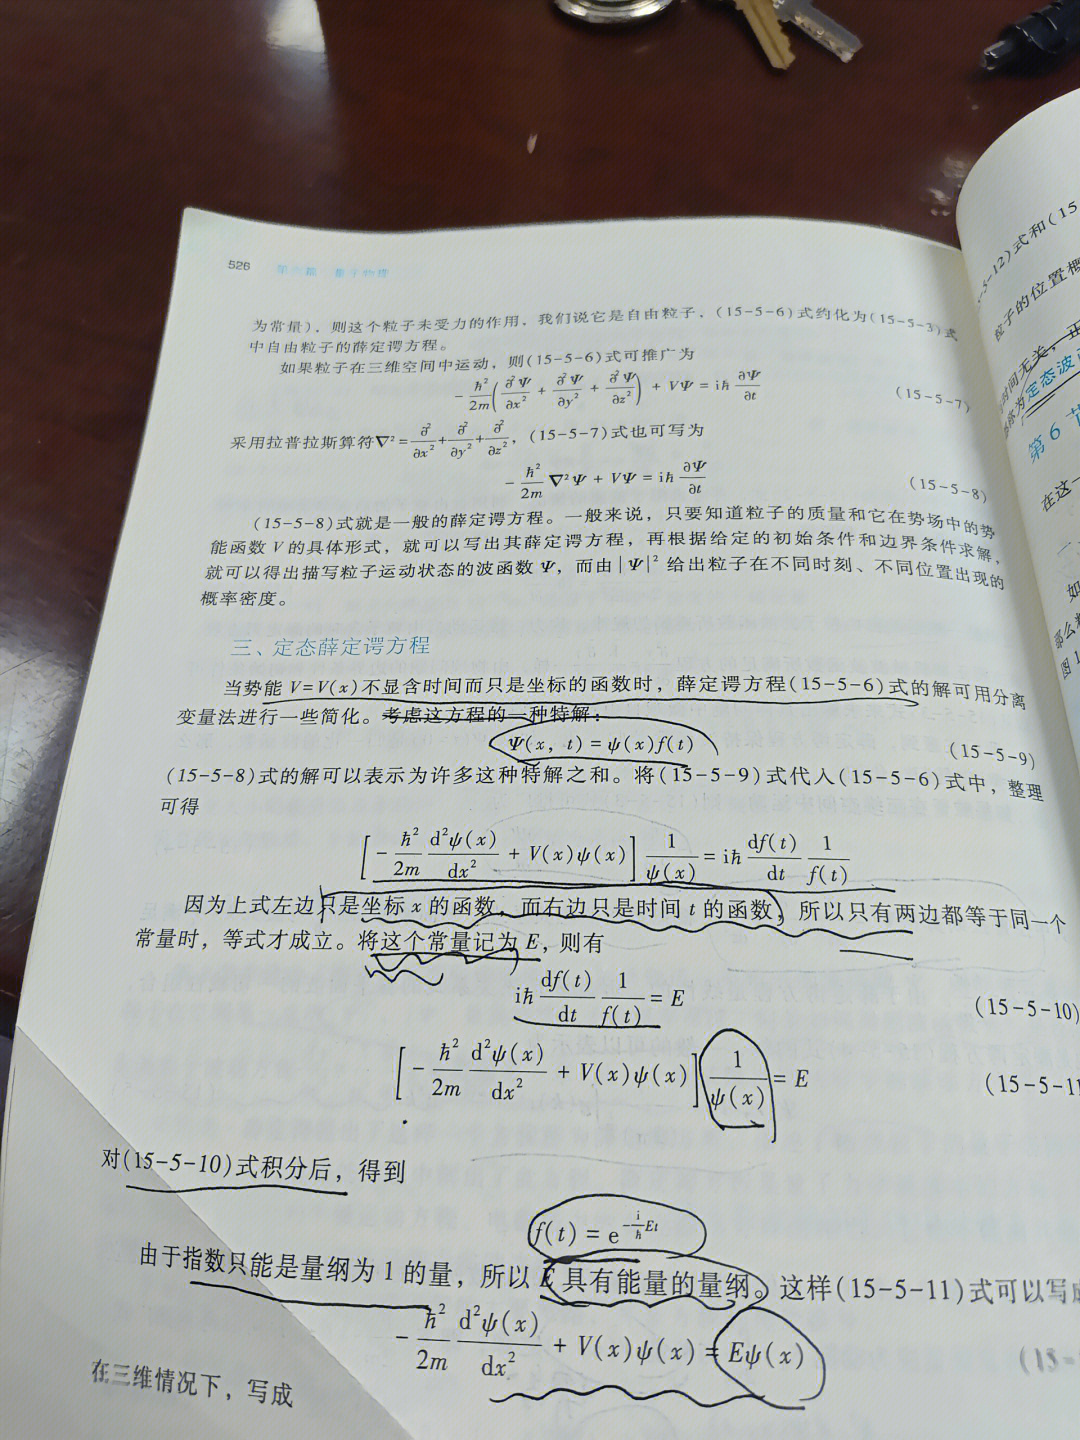 526 第六篇 量子物理
为常量)，则这个粒子未受力的作用，我们说它是自由粒子，(15-5-6)式约化为(15-5-3)式
中自由粒子的薛定谔方程。
如果粒子在三维空间中运动，则(15-5-6)式可推广为
-ℏ²/2m(∂²Ψ/∂x² + ∂²Ψ/∂y² + ∂²Ψ/∂z²) + VΨ = iℏ ∂Ψ/∂t (15-5-7)
采用拉普拉斯算符∇²=∂²/∂x²+∂²/∂y²+∂²/∂z²，(15-5-7)式也可写为
-ℏ²/2m ∇²Ψ + VΨ = iℏ ∂Ψ/∂t (15-5-8)
(15-5-8)式就是一般的薛定谔方程。一般来说，只要知道粒子的质量和它在势场中的势
能函数 V 的具体形式，就可以写出其薛定谔方程，再根据给定的初始条件和边界条件求解，
就可以得出描写粒子运动状态的波函数 Ψ，而由|Ψ|² 给出粒子在不同时刻、不同位置出现的
概率密度。
三、定态薛定谔方程
当势能 V=V(x)不显含时间而只是坐标的函数时，薛定谔方程(15-5-6)式的解可用分离
变量法进行一些简化。考虑这方程的一种特解：
Ψ(x, t) = ψ(x)f(t) (15-5-9)
(15-5-8)式的解可以表示为许多这种特解之和。将(15-5-9)式代入(15-5-6)式中，整理
可得
[-ℏ²/2m d²ψ(x)/dx² + V(x)ψ(x)] 1/ψ(x) = iℏ df(t)/dt 1/f(t)
因为上式左边只是坐标 x 的函数，而右边只是时间 t 的函数，所以只有两边都等于同一个
常量时，等式才成立。将这个常量记为 E，则有
iℏ df(t)/dt 1/f(t) = E (15-5-10)
[-ℏ²/2m d²ψ(x)/dx² + V(x)ψ(x)] 1/ψ(x) = E (15-5-11
对(15-5-10)式积分后，得到
f(t) = e^(-i/ℏ Et)
由于指数只能是量纲为 1 的量，所以 E 具有能量的量纲。这样(15-5-11)式可以写成
-ℏ²/2m d²ψ(x)/dx² + V(x)ψ(x) = Eψ(x) (15-
在三维情况下，写成
5-12)式和(15
粒子的位置概
时间无关，正
称为定态波
第6节
在这一
如
那么
图1